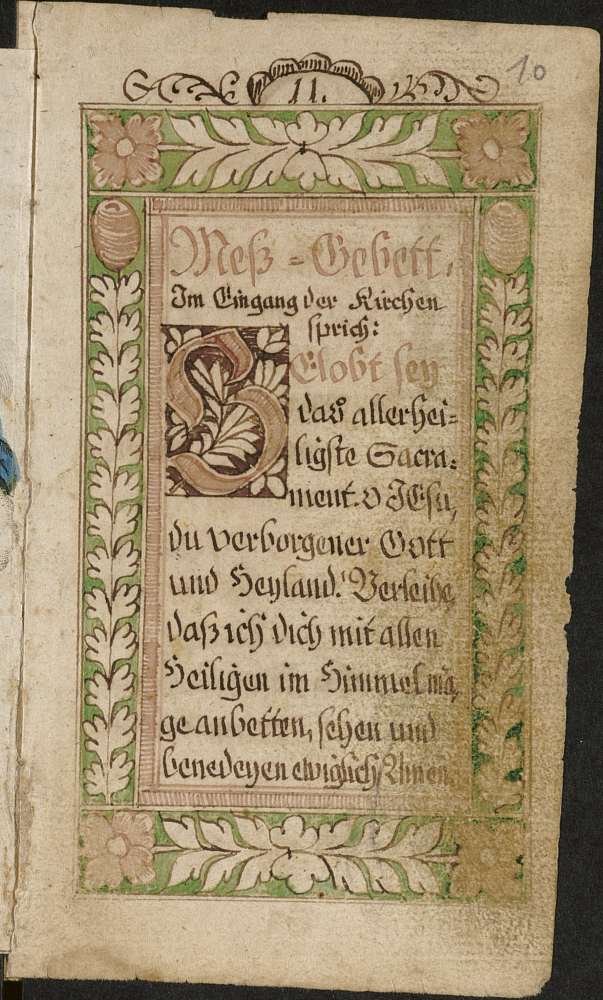 10
11.
Meß-Gebett.
Im Eingang der Kirchen
sprich:
GElobt sey
das allerhei=
ligste Sacra=
ment. O JEsu,
du verborgener Gott
und Heyland! Verleihe,
daß ich dich mit allen
Heiligen im Himmel mö=
ge anbetten, sehen und
benedeyen ewiglich Amen.